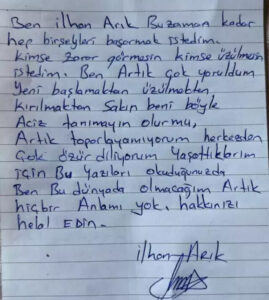 Ben ilhan Arık Bu zaman kadar
hep birşeyleri başarmak istedim.
kimse zarar görmesin kimse üzülmesin
istedim. Ben Artık çok yoruldum
Yeni başlamaktan üzülmekten
kırılmaktan Sakın beni böyle
Aciz tanımayın olurmu,
Artık toparlayamıyorum herkezden
Çok özür diliyorum Yaşattıklarım
için Bu Yazıları okuduğunuzda
Ben Bu dünyada olmacağım Artık
hiçbir Anlamı yok. hakkınızı
helal Edin.
ilhan Arık